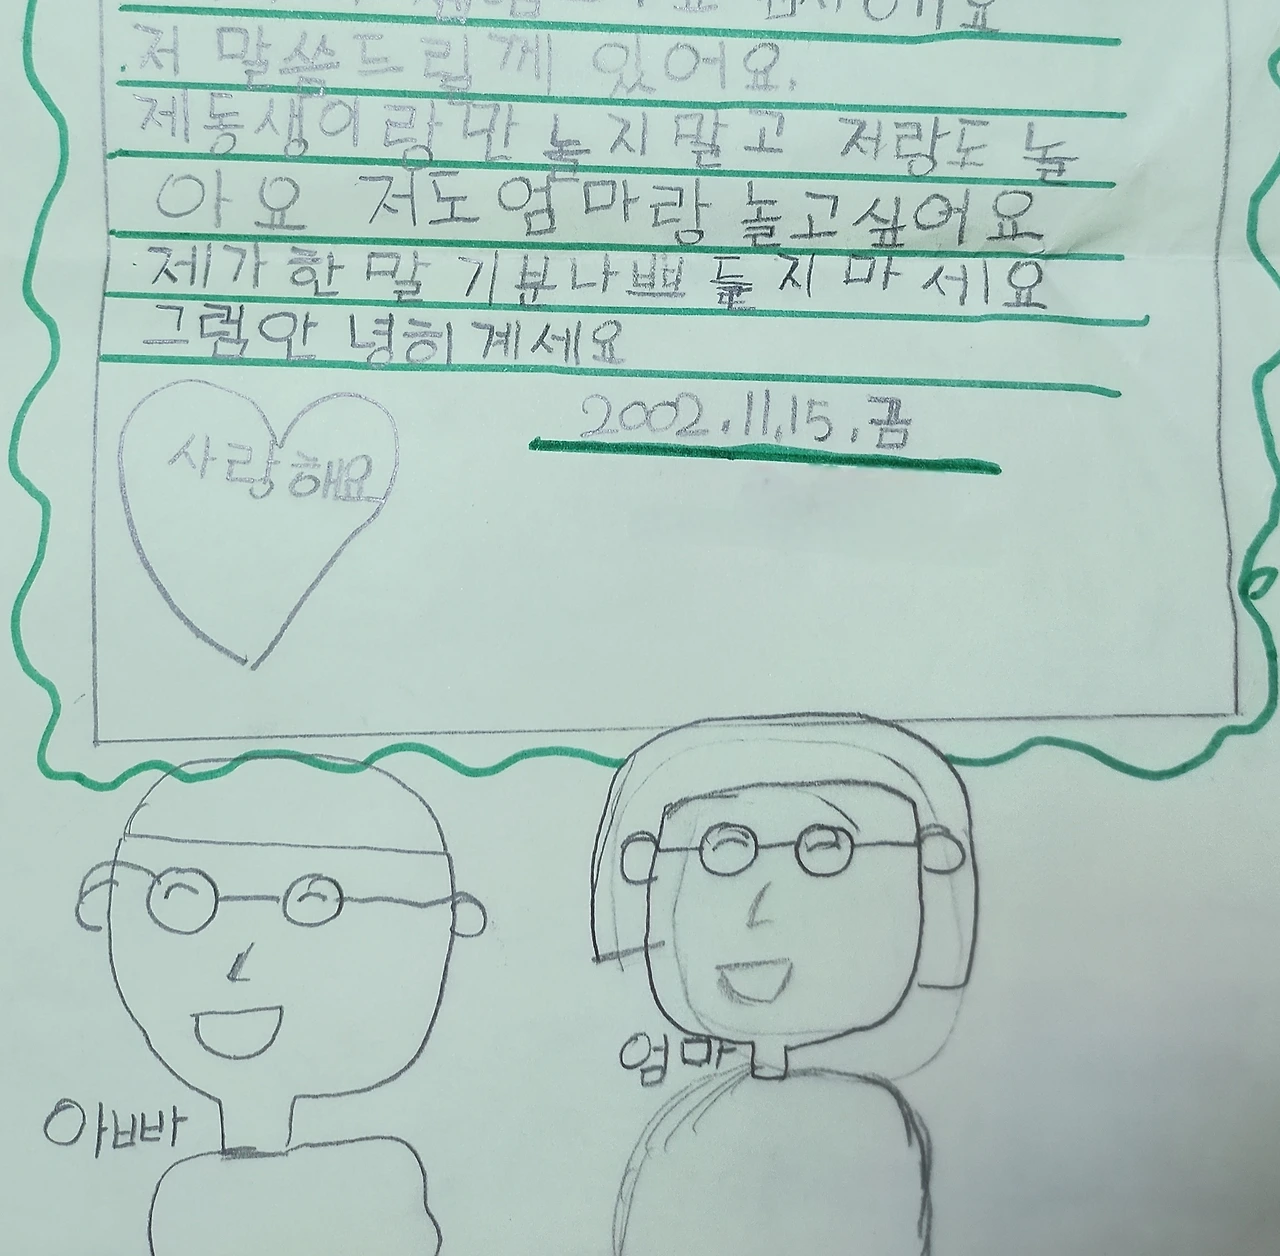 저 말씀드릴께 있어요.
제동생이랑만 놀지말고 저랑도 놀
아요 저도 엄마랑 놀고싶어요
제가 한 말 기분나쁘 듣지 마세요
그럼안녕히계세요
2002.11.15.금
사랑해요
엄마
아빠